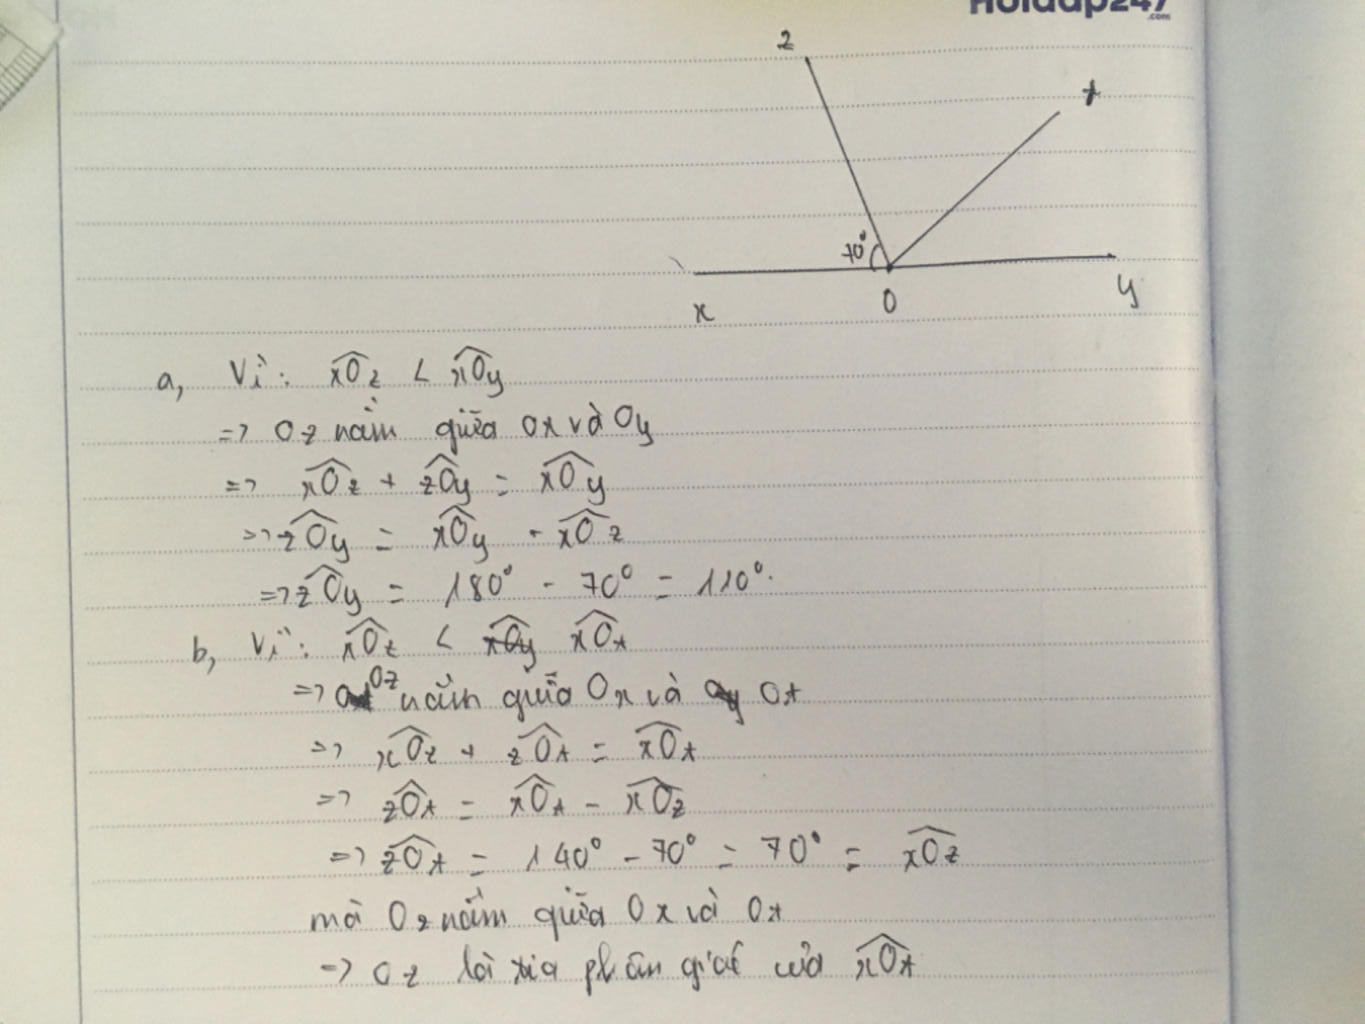 Hoidap247
.com
z
t
70°
x
O
y
a, Vì: xOz < xOy
=> Oz nằm giữa Ox và Oy
=> xOz + zOy = xOy
=> zOy = xOy - xOz
=> zOy = 180° - 70° = 110°.
b, Vì: xOz < xOy xOt
=> Oz nằm giữa Ox và Oy Ot
=> xOz + zOt = xOt
=> zOt = xOt - xOz
=> zOt = 140° - 70° = 70° = xOz
mà Oz nằm giữa Ox và Ot
=> Oz là tia phân giác của xOt